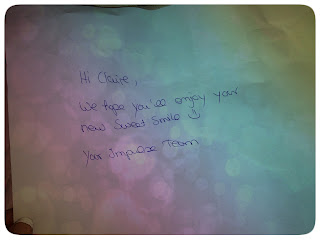 Hi Claire,
We hope you'll enjoy your
new Sweet Smile :)
Your Impulse Team